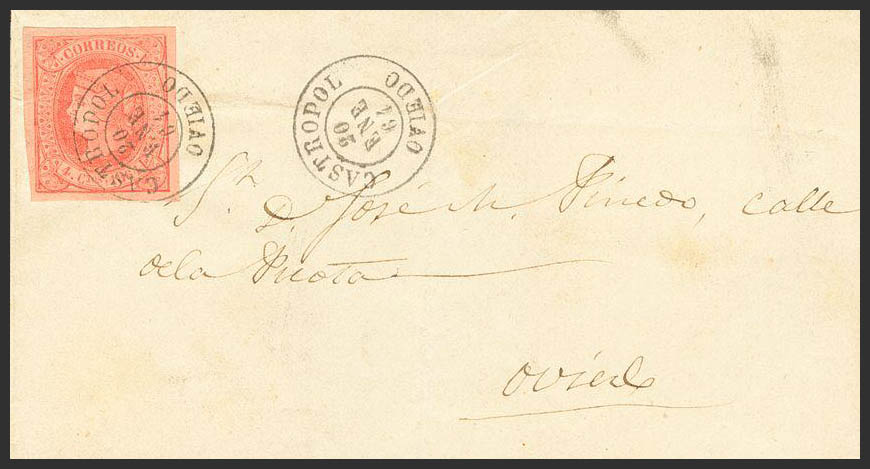 CORREOS.
4. C
CASTROPOL
20
ENE
64
OVIEDO
CASTROPOL
20
ENE
64
OVIEDO
Sr. D. José M. Pinedo, calle
de la
Oviedo